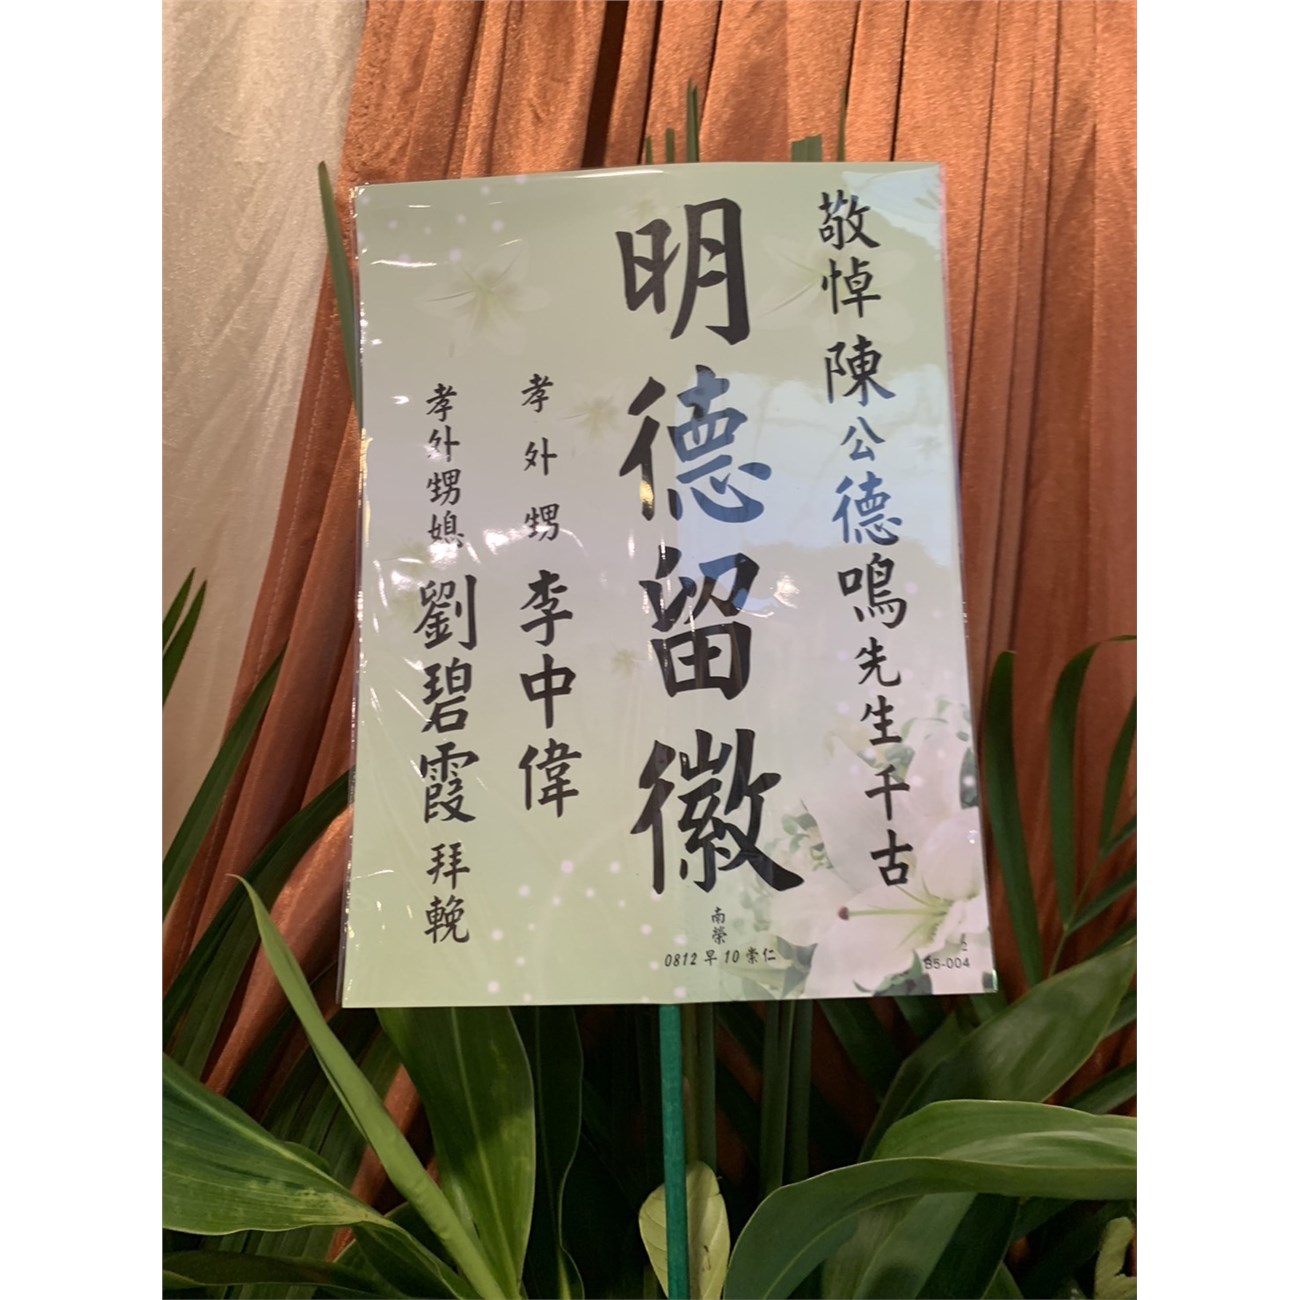 敬悼 陳公德鳴先生 千古
明德留徽
孝外甥 李中偉
孝外甥媳 劉碧霞 拜輓
南榮
0812 早 10 崇仁
B5-004